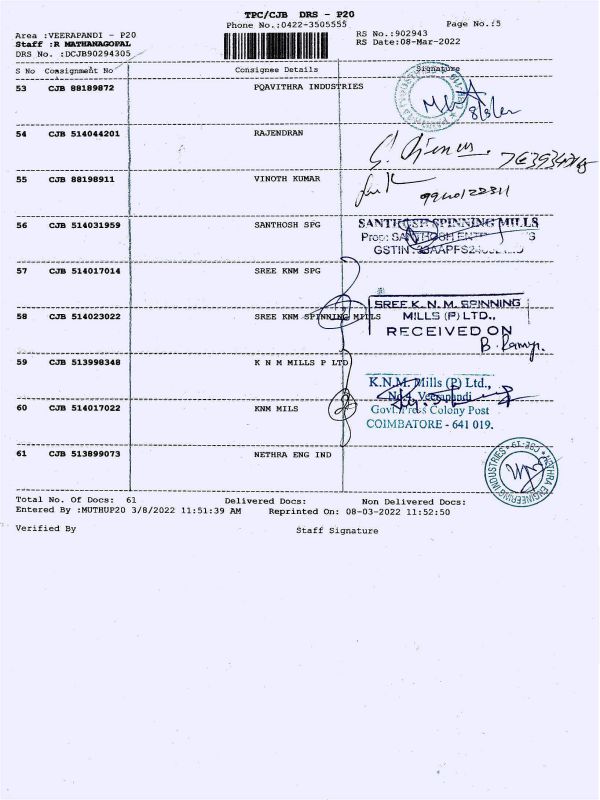 TPC/CJB DRS - P20
Phone No.:0422-3505555
Page No.:5
Area :VEERAPANDI - P20
RS No.:902943
Staff :R MATHANAGOPAL
RS Date:08-Mar-2022
DRS No. :DCJB90294305
S No Consignment No Consignee Details Signature
53 CJB 88189872 PQAVITHRA INDUSTRIES
8/3/22
54 CJB 514044201 RAJENDRAN
55 CJB 88198911 VINOTH KUMAR
9940122311
56 CJB 514031959 SANTHOSH SPG
SANTHOSH SPINNING MILLS
57 CJB 514017014 SREE KNM SPG
58 CJB 514023022 SREE KNM SPINNING MILLS
SREE K. N. M. SPINNING
MILLS (P) LTD.,
RECEIVED ON
59 CJB 513998348 K N M MILLS P LTD
K.N.M. Mills (P) Ltd.,
No.4, Veerapandi
Govt. Press Colony Post
COIMBATORE - 641 019.
60 CJB 514017022 KNM MILS
61 CJB 513899073 NETHRA ENG IND
NETHRA ENGINEERING INDUSTRIES
Total No. Of Docs: 61 Delivered Docs: Non Delivered Docs:
Entered By :MUTHUP20 3/8/2022 11:51:39 AM Reprinted On: 08-03-2022 11:52:50
Verified By Staff Signature